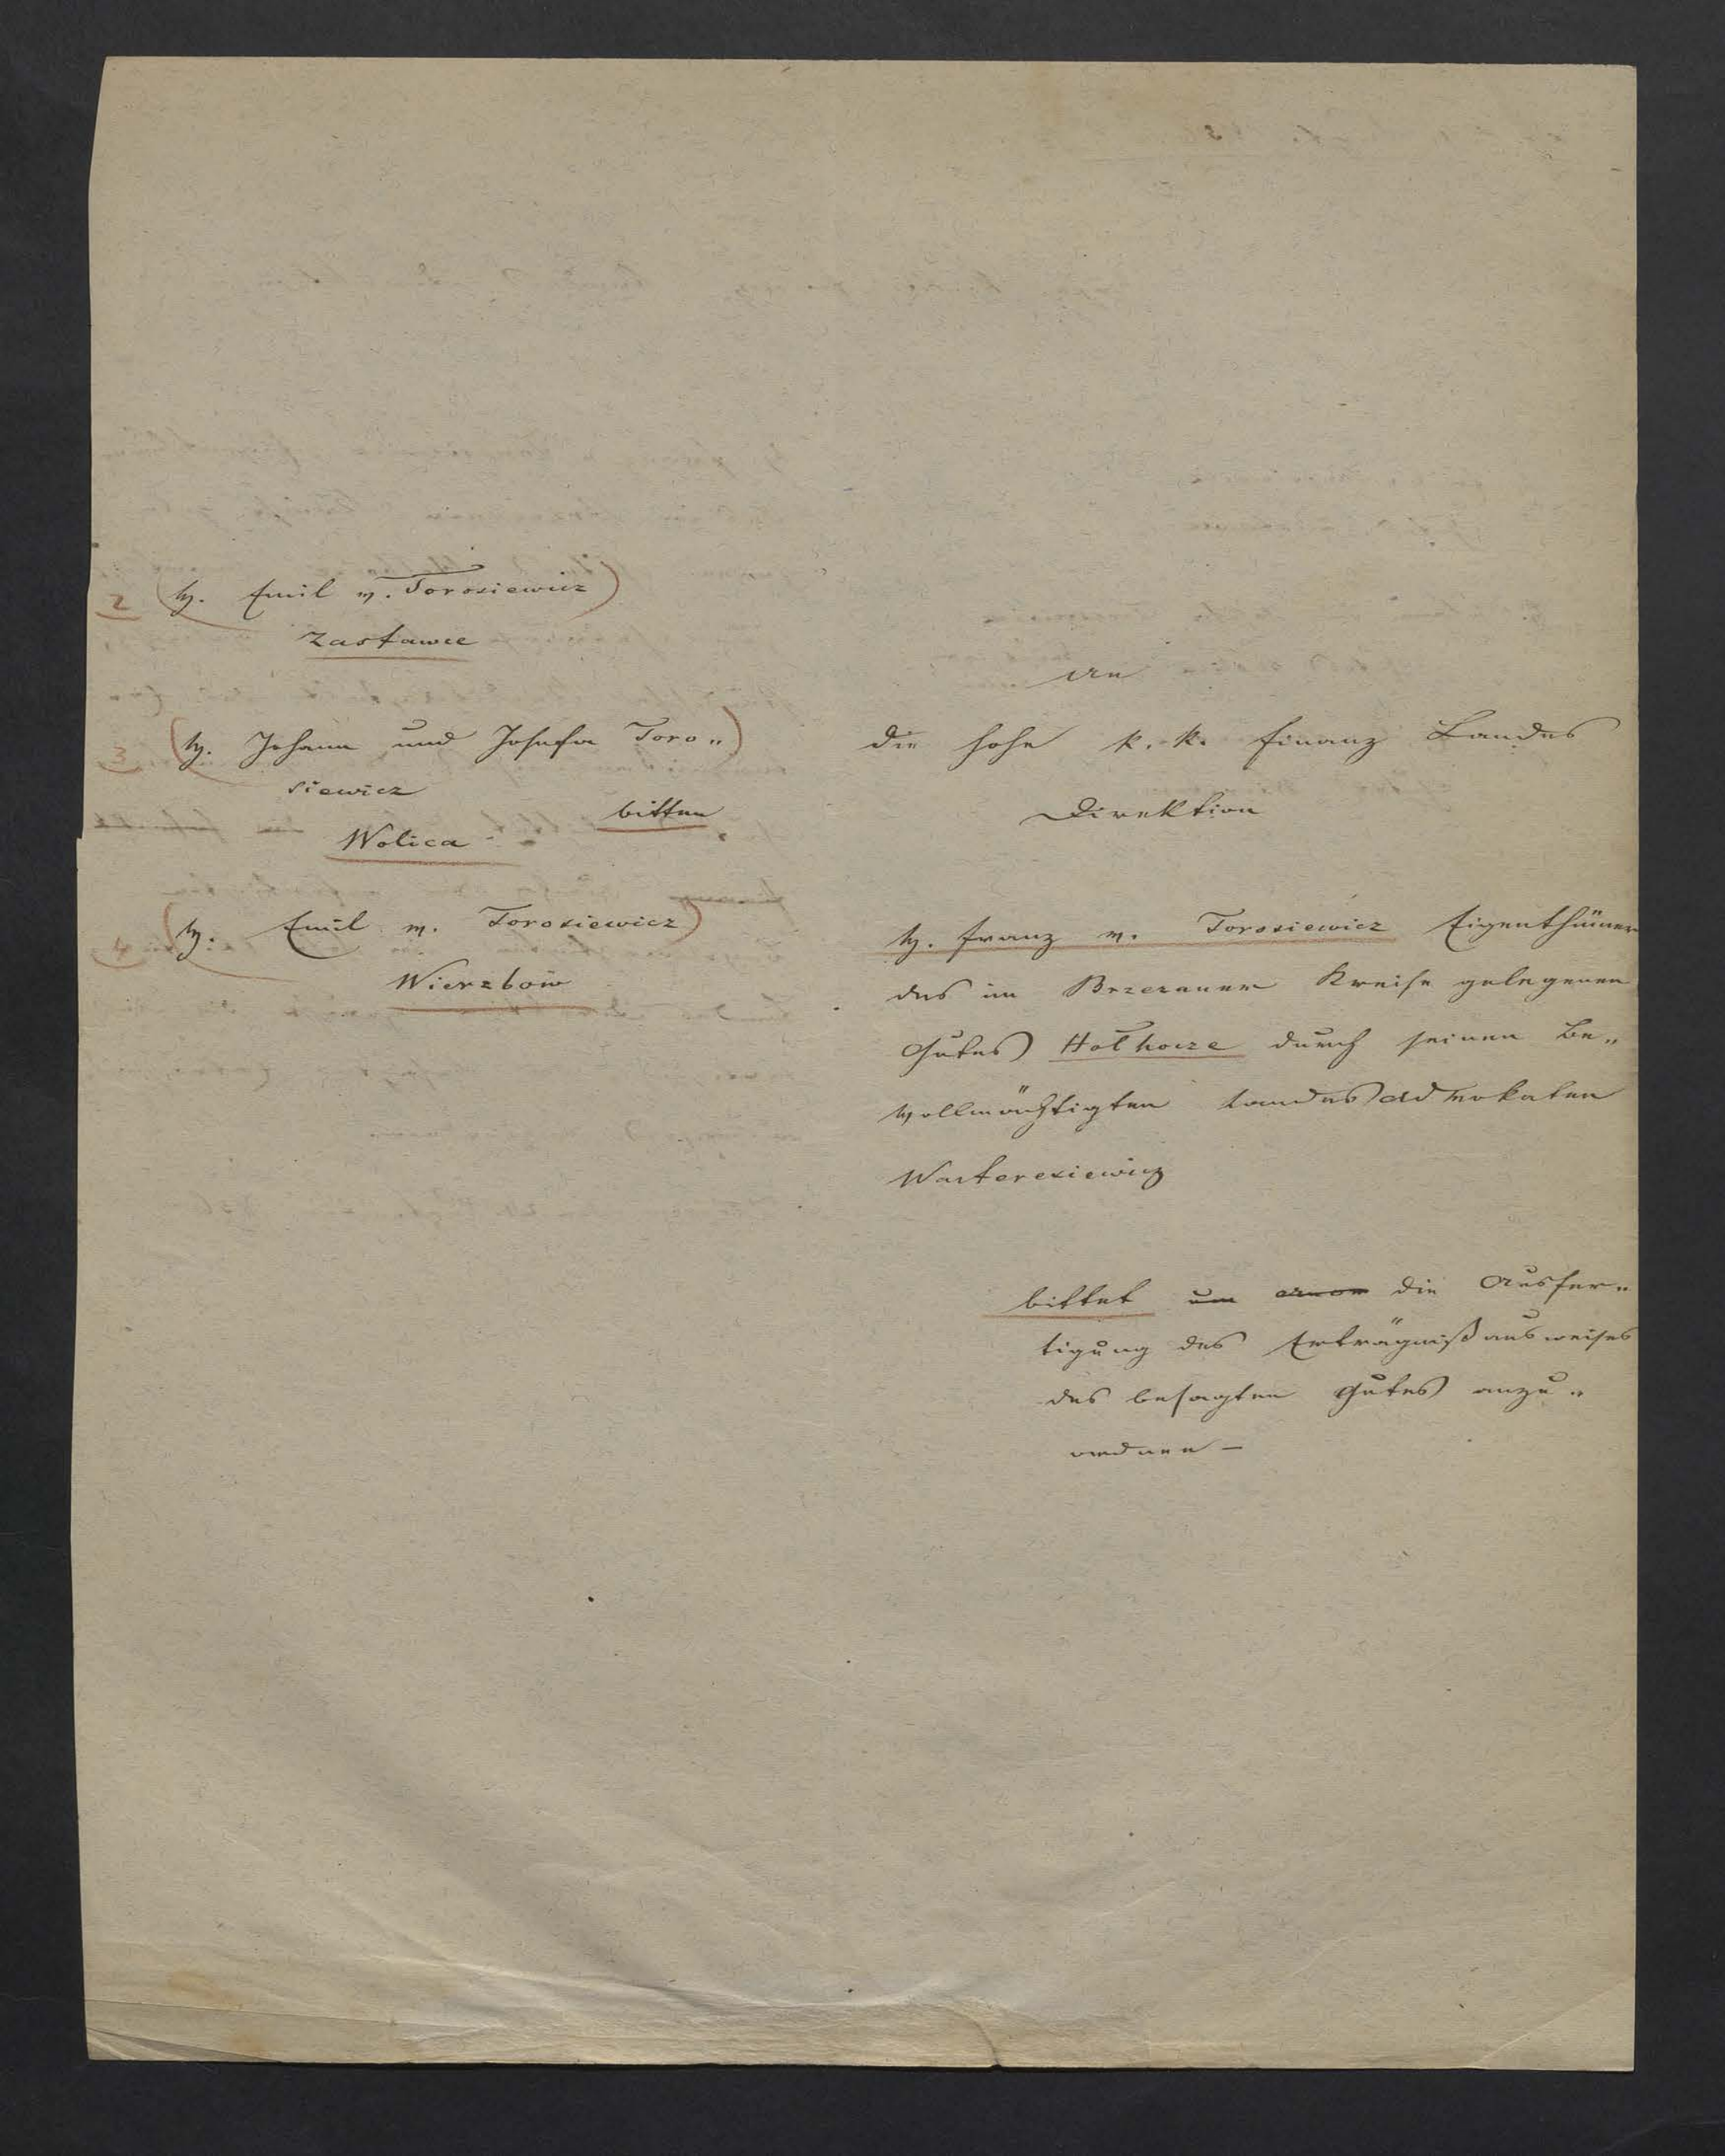 2 (H. Emil v. Torosiewicz)
Zastawce
3 (H. Johann und Josefa Toro„)
siewicz
bitten
Wolica
4 (H. Emil v. Torosiewicz)
Wierzbów
An
die hohe k. k. Finanz Landes
Direktion
H. Franz v. Torosiewicz Eigenthümer
des im Brzezaner Kreise gelegenen
Gutes Hołhocze durch seinen Be„
vollmächtigten Landes Advokaten
Warteresiewicz
bittet um die Ausfer„
tigung des Erträgnißausweises
des besagten Gutes anzu„
ordnen –